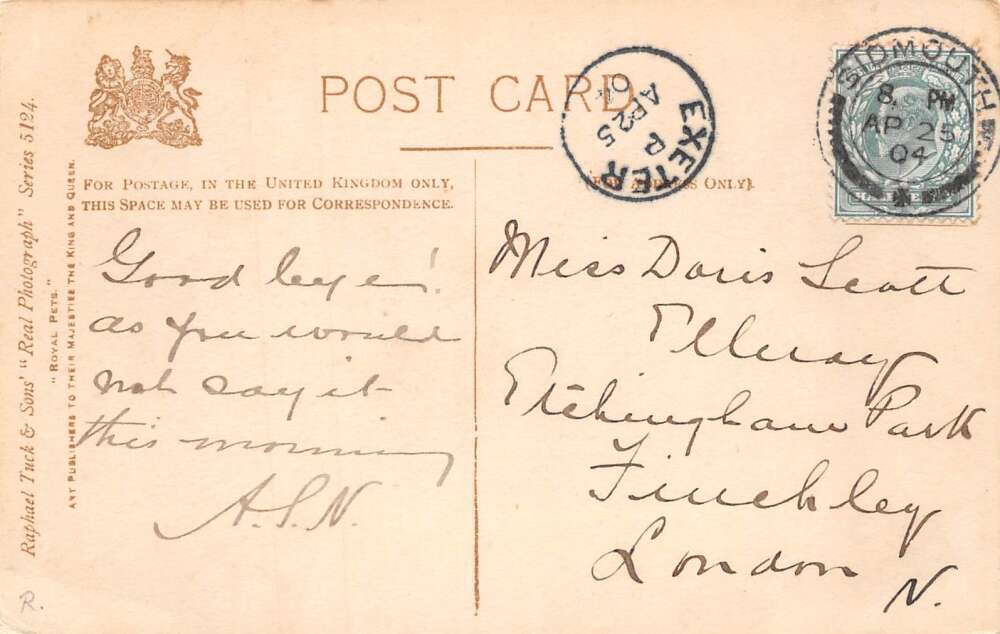 POST CARD
FOR POSTAGE, IN THE UNITED KINGDOM ONLY,
THIS SPACE MAY BE USED FOR CORRESPONDENCE.
(FOR ADDRESS ONLY).
EXETER
P
AP 25
04
SIDMOUTH
8. PM
AP 25
04
Raphael Tuck & Sons' "Real Photograph" Series 5124.
"ROYAL PETS."
ART PUBLISHERS TO THEIR MAJESTIES THE KING AND QUEEN.
Good bye!
as you would
not say it
this morning
A.S.N.
Miss Doris Scott
Etchingham Park
Finchley
London
N.
R.